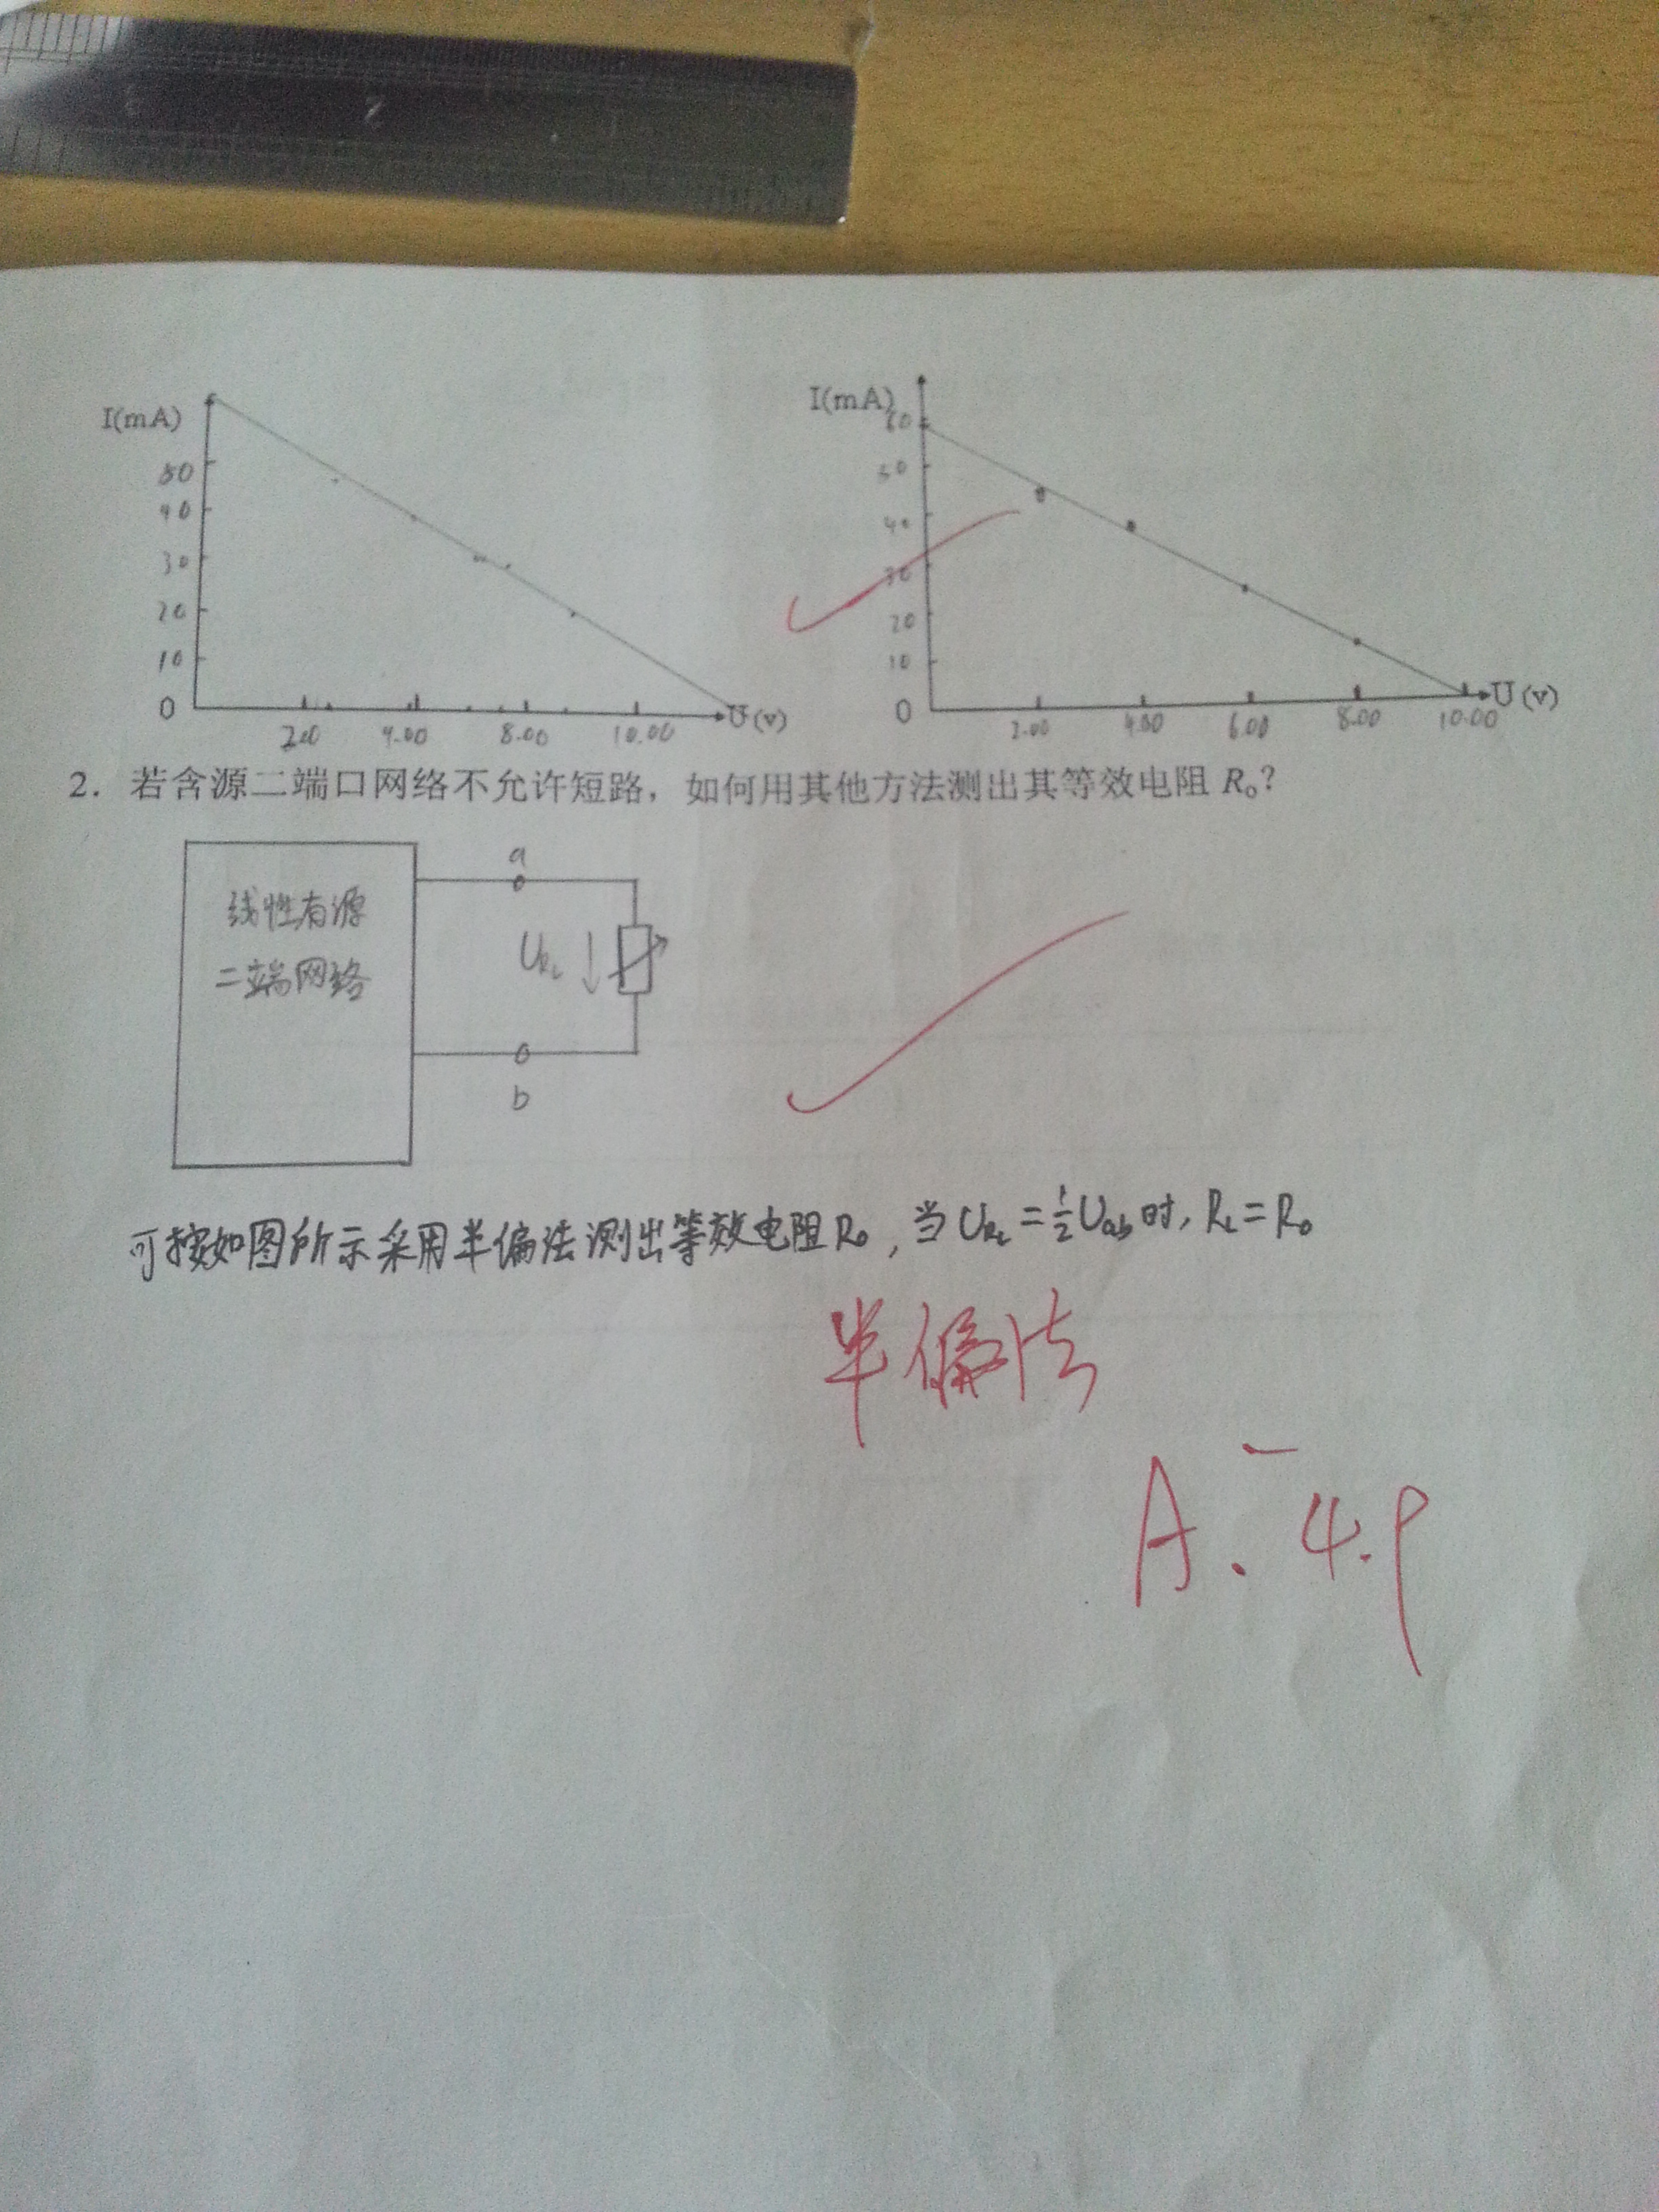 I(mA)
50
40
30
20
10
0
2.00 4.00 8.00 10.00 U(v)
I(mA)
60
50
40
30
20
10
0
2.00 4.00 6.00 8.00 10.00 U(v)
2. 若含源二端口网络不允许短路，如何用其他方法测出其等效电阻 R₀？
线性有源
二端网络
a
U_RL ↓
b
可按如图所示采用半偏法测出等效电阻R₀，当U_RL=½Uab时，RL=R₀
半偏法
A⁻. 4.9